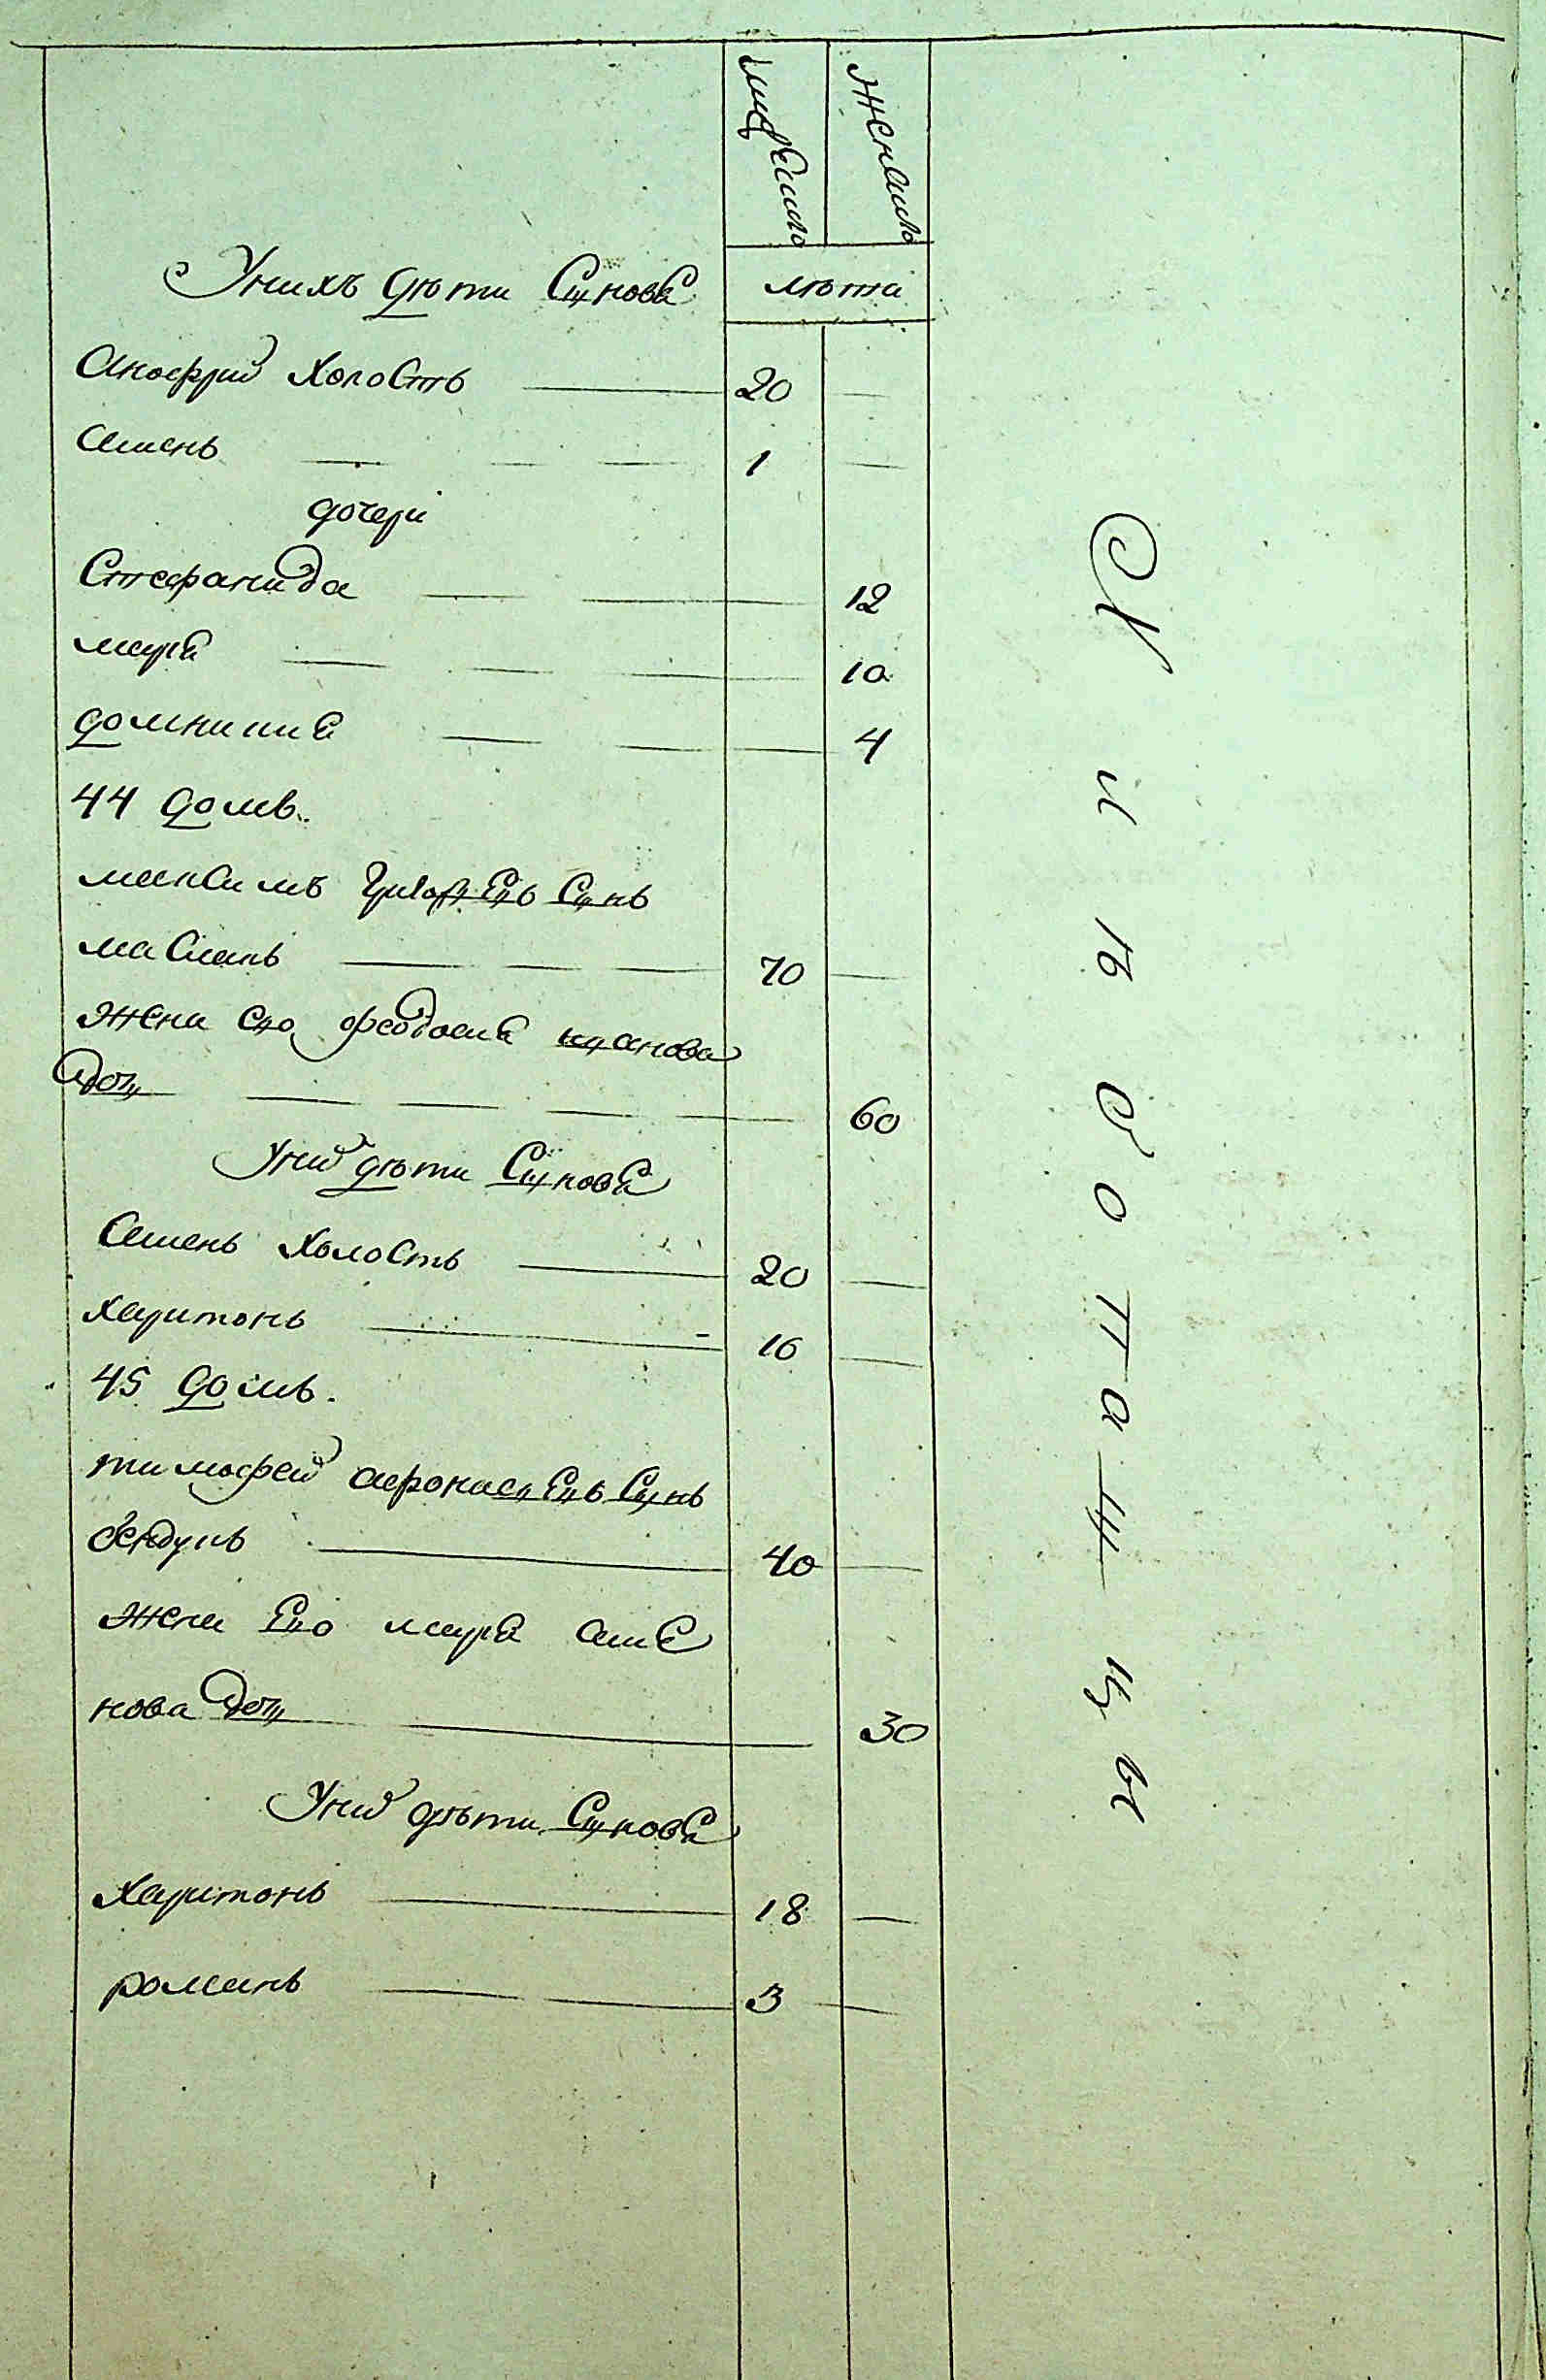 мужеско
женско
Унихъ дѣти Синове
лѣта
Анофрий холостъ 20
Семенъ 1
дочери
Стефанида 12
мария 10
домникия 4
44 домъ.
максимъ Григориевъ Синъ
масианъ 70
жена его феодосия иванова
дочъ 60
Уних дѣти Синове
Семенъ холостъ 20
харитонъ 16
45 домъ.
тимофей афонасиевъ Синъ
бендукъ 40
жена Его мария симе
нова дочъ 30
Уних дѣти Синове
харитонъ 18
романъ 3
хлѣбопашцы